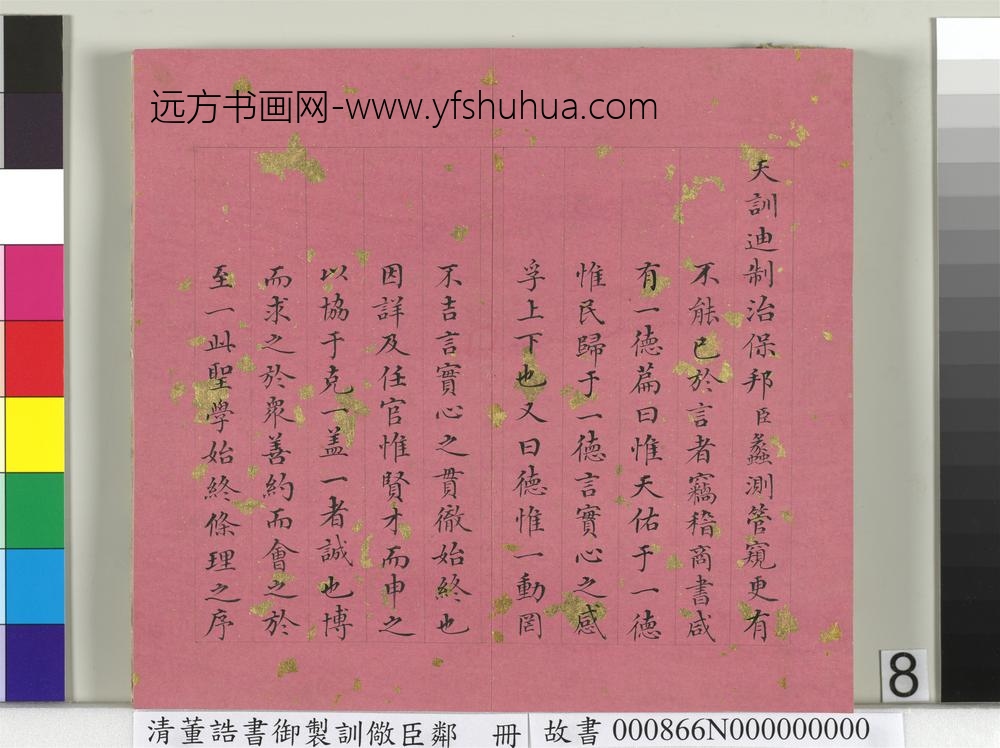 远方书画网-www.yfshuhua.com
天訓迪制治保邦臣蠡測管窺更有
不能已於言者竊稽商書咸
有一德篇曰惟天佑于一德
惟民歸于一德言實心之感
孚上下也又曰德惟一動罔
不吉言實心之貫徹始終也
因詳及任官惟賢才而申之
以協于克一蓋一者誠也博
而求之於眾善約而會之於
至一此聖學始終條理之序
8
清董誥書御製訓儆臣鄰 冊
故書 000866N000000000